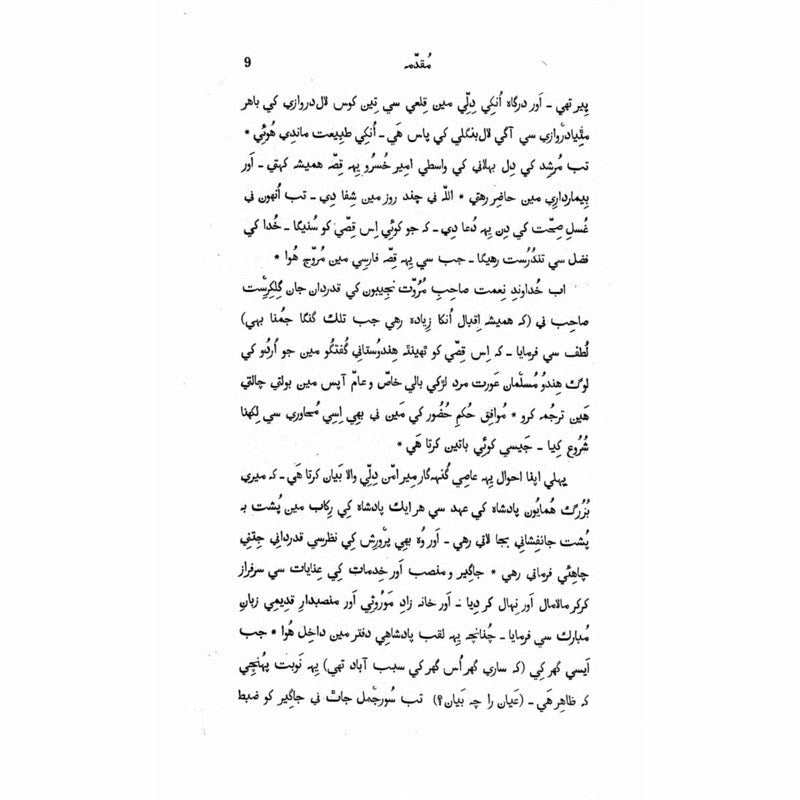 مُقدّمہ 9
پیر تھي ـ اَور درگاہ اُنکي دِلّي مین قِلعي سي تِین کوس لال دروازي کي باهر
مٹِیا دروازي سي آگي لال بنگلي کي پاس هَي ـ اُنکي طبِیعت ماندِي هُوئِي *
تب مُرشِد کي دِل بہلاني کي واسطي امِیر خُسرو یِہہ قِصّہ همیشہ کہتي ـ اَور
بِیمارداري مین حاضِر رهتي * اللہ ني چند روز مین شِفا دِي ـ تب اُنهون ني
غُسلِ صِحّت کي دِن یِہہ دُعا دِي ـ کہ جو کوئِي اِس قِصّي کو سُنیگا ـ خُدا کي
فضل سي تندُرُست رهیگا ـ جب سي یِہہ قِصّہ فارسِي مین مُروّج هُوا *
اب خُداوندِ نِعمت صاحِبِ مُرُوّت نجِیبون کي قدردان جان گِلکِرِسٹ
صاحِب ني (کہ همیشہ اِقبال اُنکا زِیادہ رهي جب تلک گنگا جمُنا بہي)
لُطف سي فرمایا ـ کہ اِس قِصّي کو ٹھینٹھ هِندوستاني گُفتگو مین جو اُردُو کي
لوگ هِندُو مُسلمان عَورت مرد لڑکي بالي خاصّ و عامّ آپس مین بولتي چالتي
هَین ترجُمہ کرو * مُوافِق حُکمِ حُضُور کي مَین ني بھِي اِسِي مُحاوري سي لِکھنا
شُرُوع کِیا ـ جَیسي کوئِي باتین کرتا هَي *
پہلي اپنا احوال یِہہ عاصِي گُنہگار مِیر امّن دِلّي والا بَیان کرتا هَي ـ کہ میري
بُزُرگ هُمایُون پادشاہ کي عہد سي هر ایک پادشاہ کِي رِکاب مین پُشت بہ
پُشت جانفِشاني بجا لاتي رهي ـ اَور وُہ بھِي پرورِش کِي نظر سي قدرداني جِتني
چاهِئي فرماتي رهي * جاگِیر و منصب اَور خِدمات کِي عِنایات سي سرفراز
کرکر مالامال اَور نِہال کر دِیا ـ اَور خانہ زادِ مَورُوثِي اَور منصبدارِ قدِیمِي زبانِ
مُبارک سي فرمایا ـ چُنانچِہ یِہہ لقب پادشاهِي دفتر مین داخِل هُوا * جب
اَیسي گھر کِي (کہ ساري گھر اُس گھر کي سبب آباد تھي) یِہہ نَوبت پہُنچِي
کہ ظاهِر هَي ـ (عَیان را چہ بَیان؟) تب سُورجمل جاٹ ني جاگِیر کو ضبط